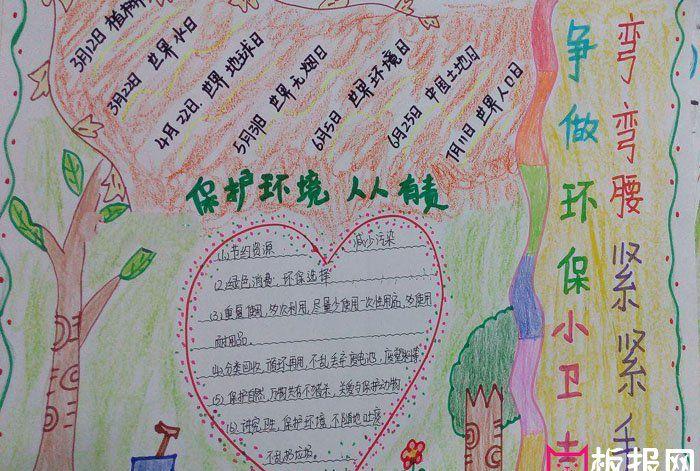 3月12日 植树
3月22日 世界水日
4月22日 世界地球日
5月31日 世界无烟日
6月5日 世界环境日
6月25日 中国土地日
7月11日 世界人口日
保护环境 人人有责
(1)节约资源 减少污染
(2)绿色消费,环保选择
(3)重复使用,多次利用,尽量少使用一次性用品,多使用
耐用品。
(4)分类回收,循环再用,不乱丢弃
(5)保护自然,万物共存不
(6)
保护环境,不随地吐痰
不乱扔垃圾。
弯弯腰紧紧手
争做环保小卫士
板报网